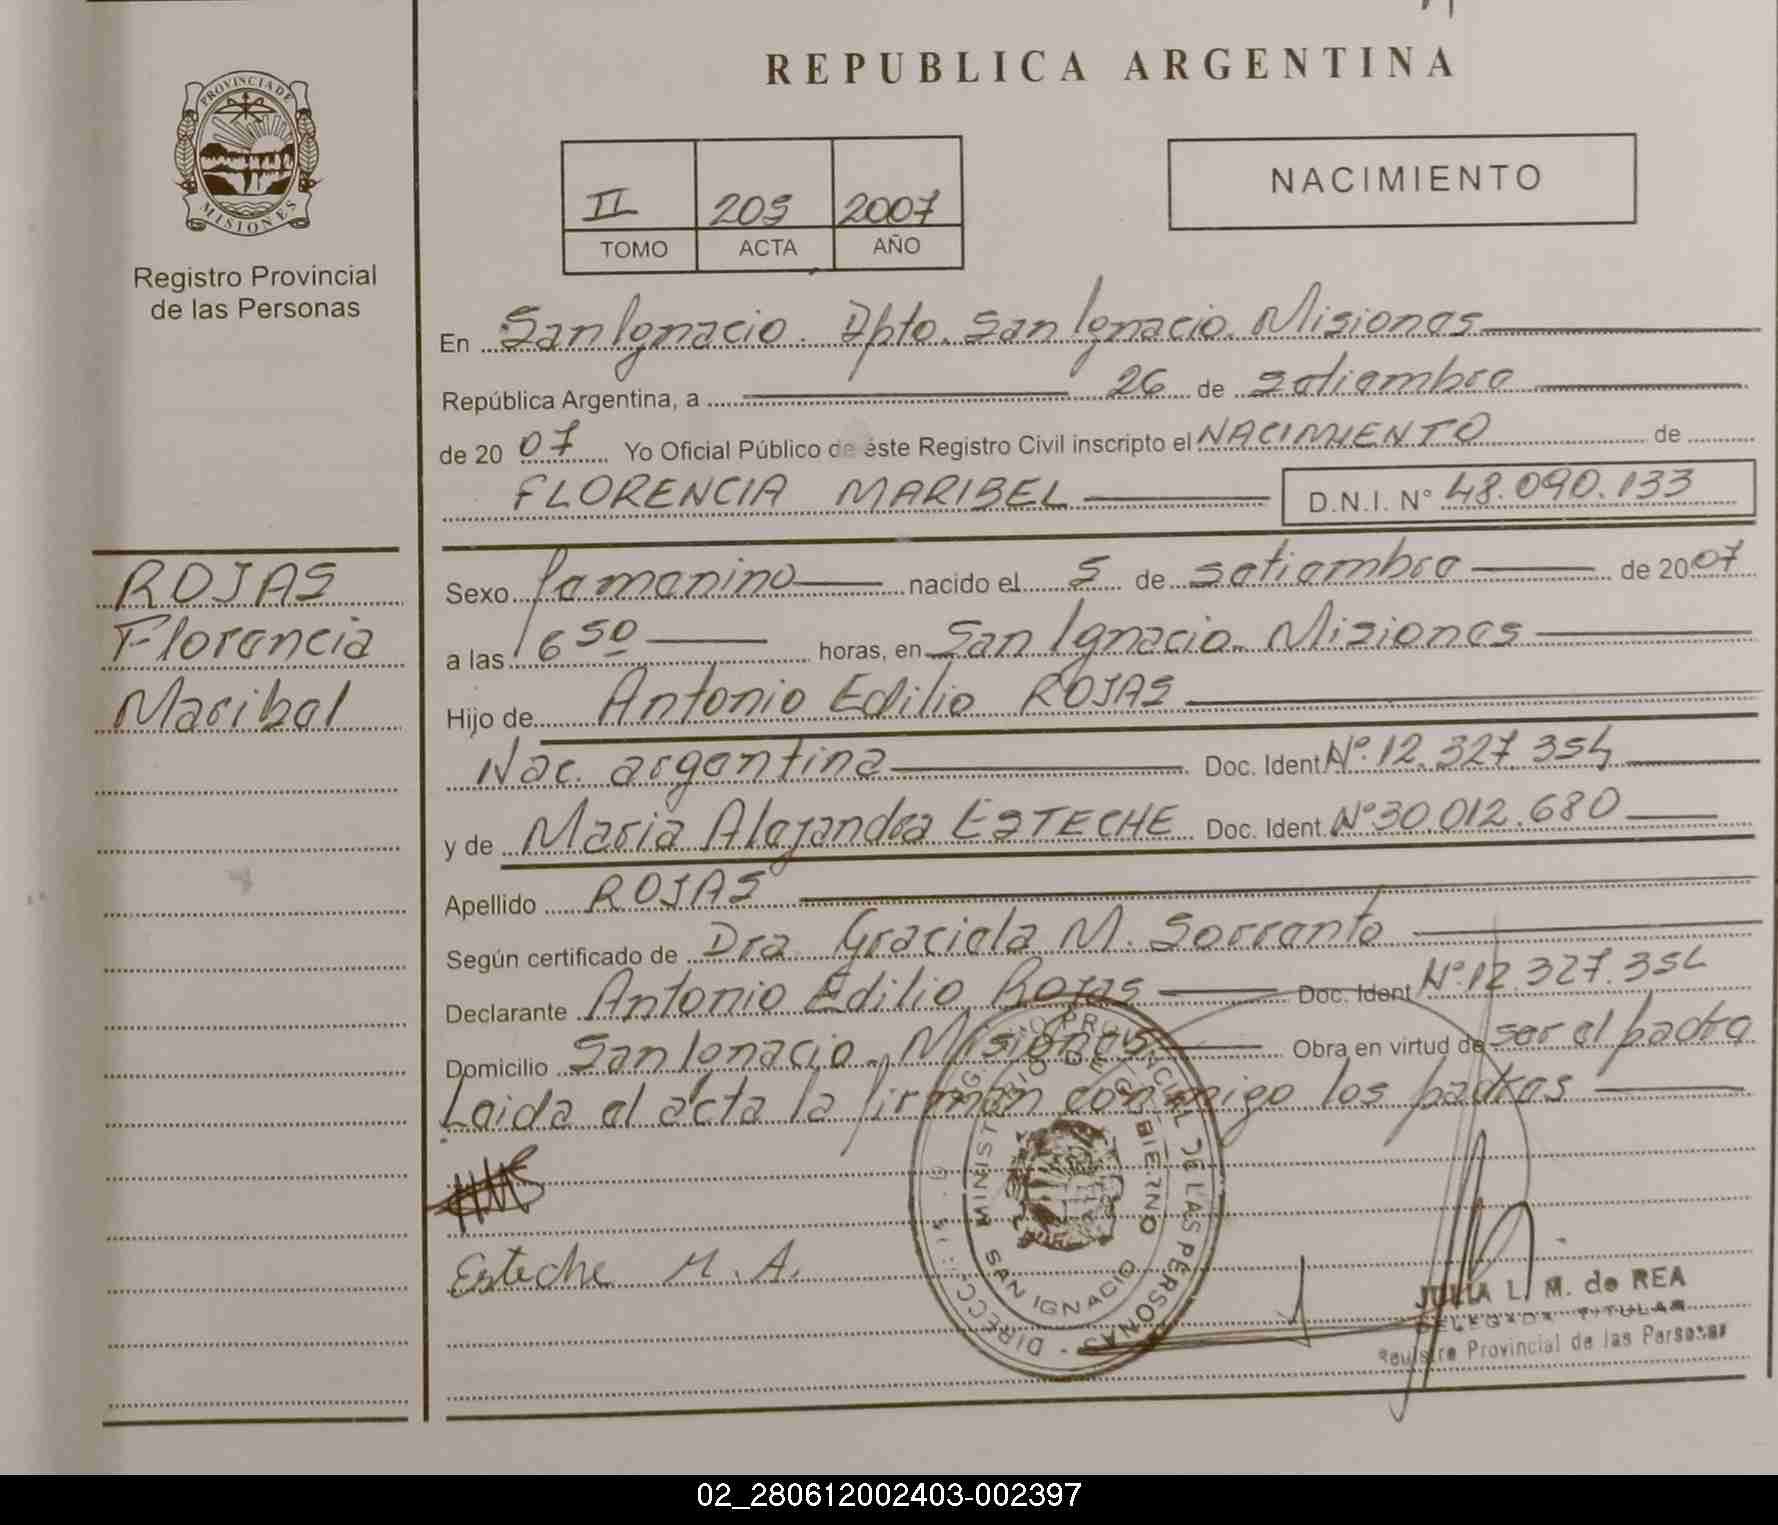 REPUBLICA ARGENTINA
PROVINCIA DE
MISIONES
Registro Provincial
de las Personas
II 205 2007
TOMO ACTA AÑO
NACIMIENTO
En San Ignacio. Dpto. San Ignacio. Misiones
República Argentina, a 26 de setiembre
de 2007 Yo Oficial Público de éste Registro Civil inscripto el NACIMIENTO de
FLORENCIA MARIBEL D.N.I. N° 48.090.133
ROJAS
Florencia
Maribel
Sexo femenino nacido el 5 de setiembre de 2007
a las 16 50 horas, en San Ignacio. Misiones
Hijo de Antonio Edilio ROJAS
Nac. argentina Doc. Ident N° 12.327.354
y de Maria Alejandra ESTECHE Doc. Ident. N° 30.012.680
Apellido ROJAS
Según certificado de Dra. Graciela M. Sorrento
Declarante Antonio Edilio Rojas Doc. Ident N° 12.327.354
Domicilio San Ignacio. Misiones Obra en virtud de ser el padre
Leida el acta la firman conmigo los padres
Esteche M. A.
MINISTERIO DE GOBIERNO
SAN IGNACIO
PROVINCIAL DE LAS PERSONAS
JULIA L. M. de REA
DELEGADA TITULAR
Registro Provincial de las Personas
02_280612002403-002397